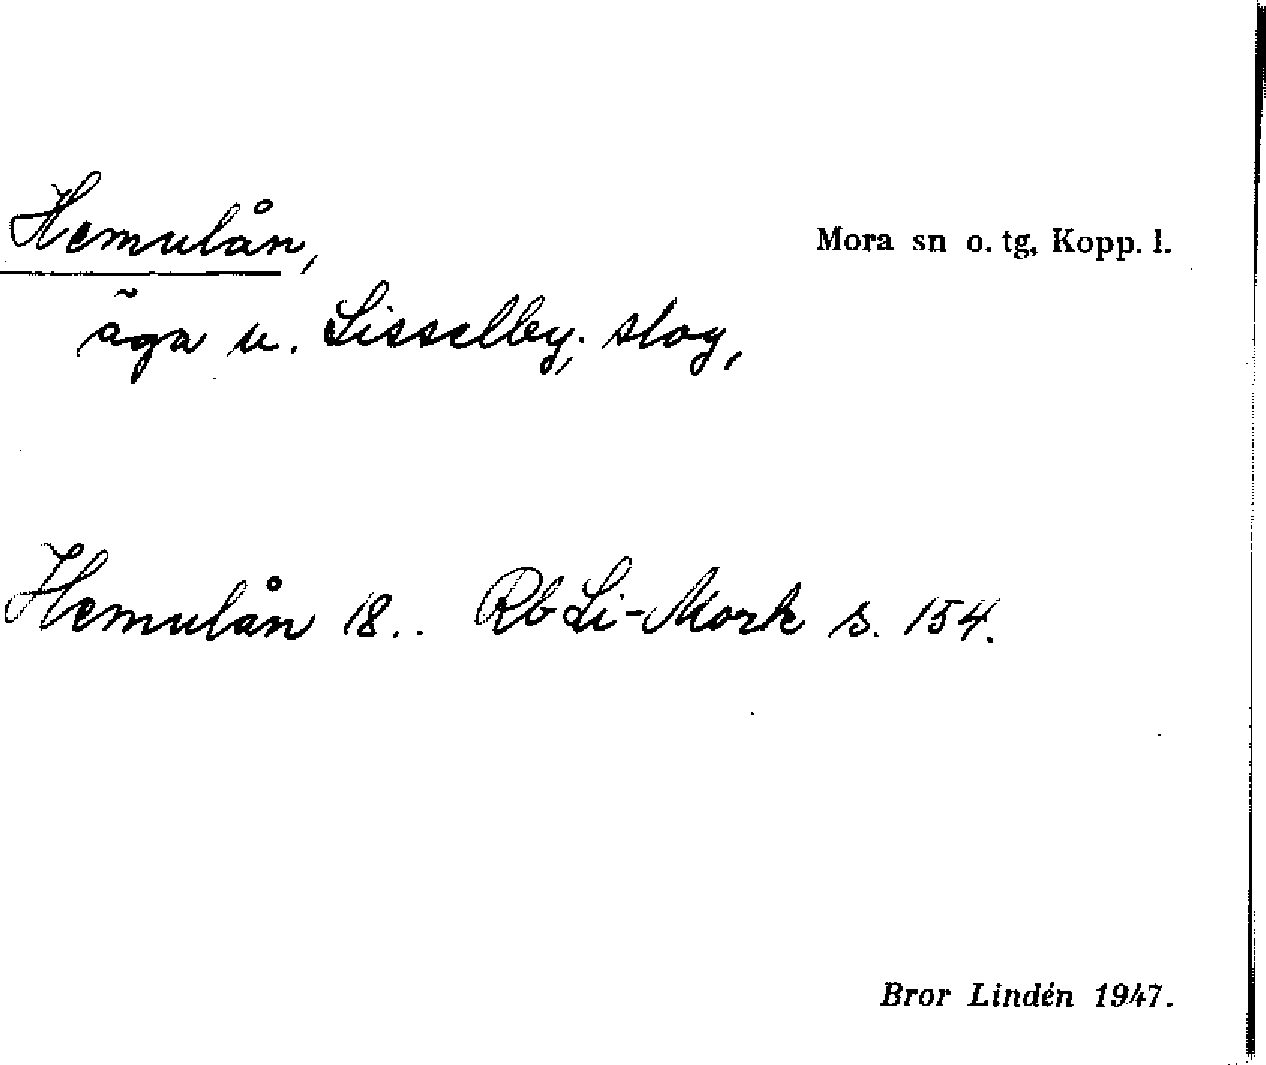 Hemulån,
Mora sn o. tg, Kopp. l.
äga u. Lisselby; slog,
Hemulån 18.. Rb Li-Mork s. 154.
Bror Lindén 1947.